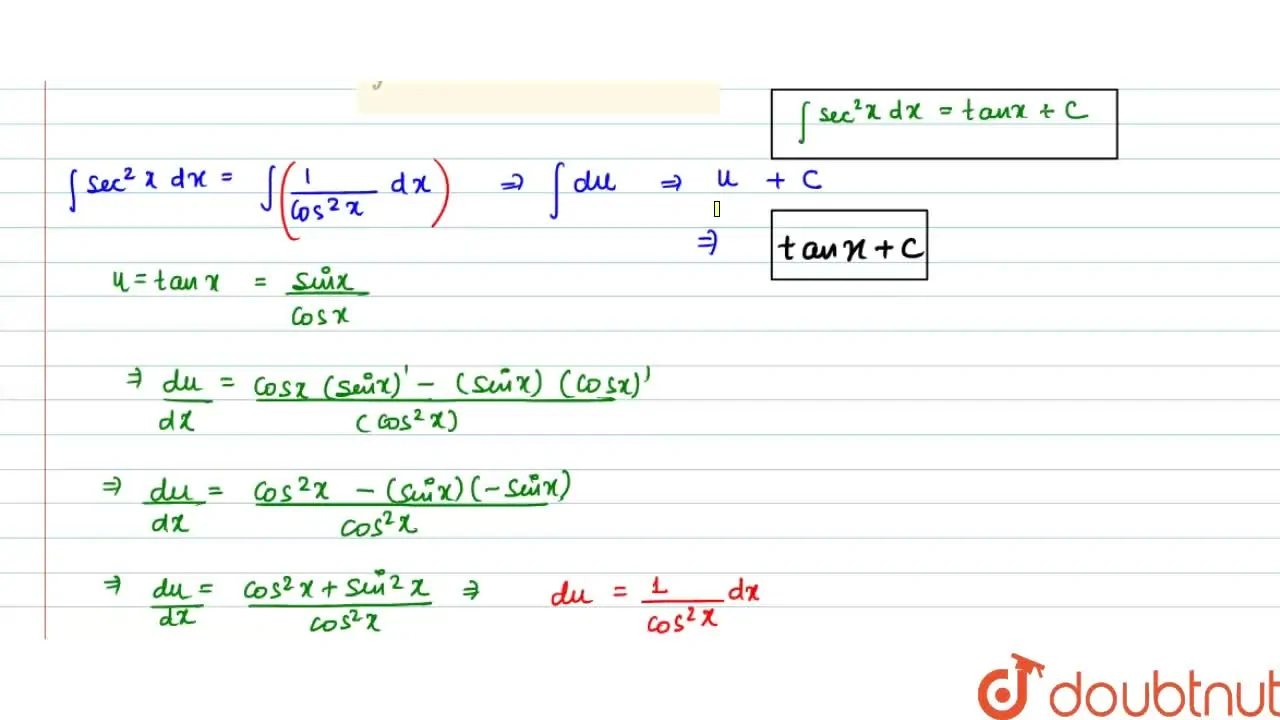 ∫ sec²x dx = tanx + C
∫ sec² x dx = ∫ (1/cos²x dx) ⇒ ∫ du ⇒ u + C
⇒ tanx + C
u = tan x = sinx/cosx
⇒ du/dx = cosx (sinx)' - (sinx) (cosx)'/(cos²x)
⇒ du/dx = cos²x - (sinx)(-sinx)/cos²x
⇒ du/dx = cos²x + sin²x/cos²x ⇒ du = 1/cos²x dx
doubtnut